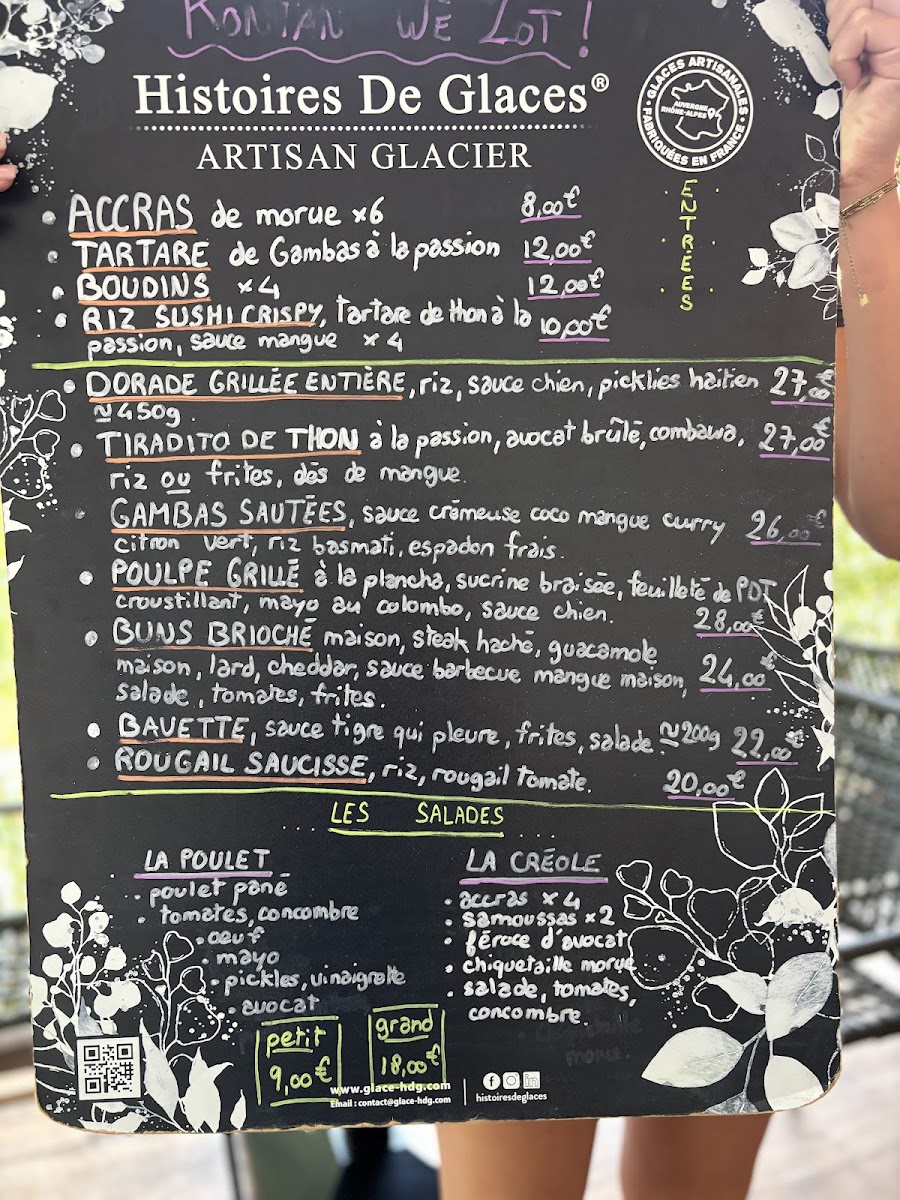 KONTAN WÈ ZOT !
Histoires De Glaces®
ARTISAN GLACIER
GLACES ARTISANALES
AUVERGNE
RHÔNE-ALPES
FABRIQUÉES EN FRANCE
ENTRÉES
ACCRAS de morue x6 8,00€
TARTARE de Gambas à la passion 12,00€
BOUDINS x4 12,00€
RIZ SUSHI CRISPY, tartare de thon à la 10,00€
passion, sauce mangue x4
DORADE GRILLÉE ENTIÈRE, riz, sauce chien, picklies haïtien 27,00€
≈450g.
TIRADITO DE THON à la passion, avocat brûlé, combawa, 27,00€
riz ou frites, dés de mangue.
GAMBAS SAUTÉES, sauce crémeuse coco mangue curry 26,00€
citron vert, riz basmati, espadon frais.
POULPE GRILLÉ à la plancha, sucrine braisée, feuilleté de PDT
croustillant, mayo au colombo, sauce chien. 28,00€
BUNS BRIOCHÉ maison, steak haché, guacamole
maison, lard, cheddar, sauce barbecue mangue maison, 24,00€
salade, tomates, frites.
BAVETTE, sauce tigre qui pleure, frites, salade ≈200g 22,00€
ROUGAIL SAUCISSE, riz, rougail tomate. 20,00€
.... LES SALADES ....
LA POULET
poulet pané
tomates, concombre
oeuf
mayo
pickles, vinaigrette
avocat
LA CRÉOLE
accras x4
samoussas x2
féroce d'avocat
chiquetaille morue
salade, tomates,
concombre.
morue.
petit
9,00€
grand
18,00€
www.glace-hdg.com
Email : contact@glace-hdg.com
histoiresdeglaces